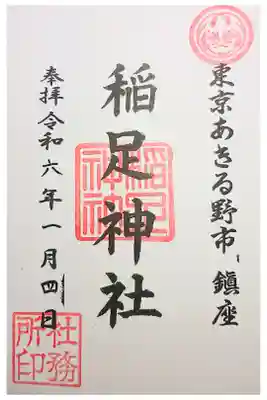 東京あきる野市鎮座
稲足神社
稲足神社
奉拝令和六年一月四日
社務所印